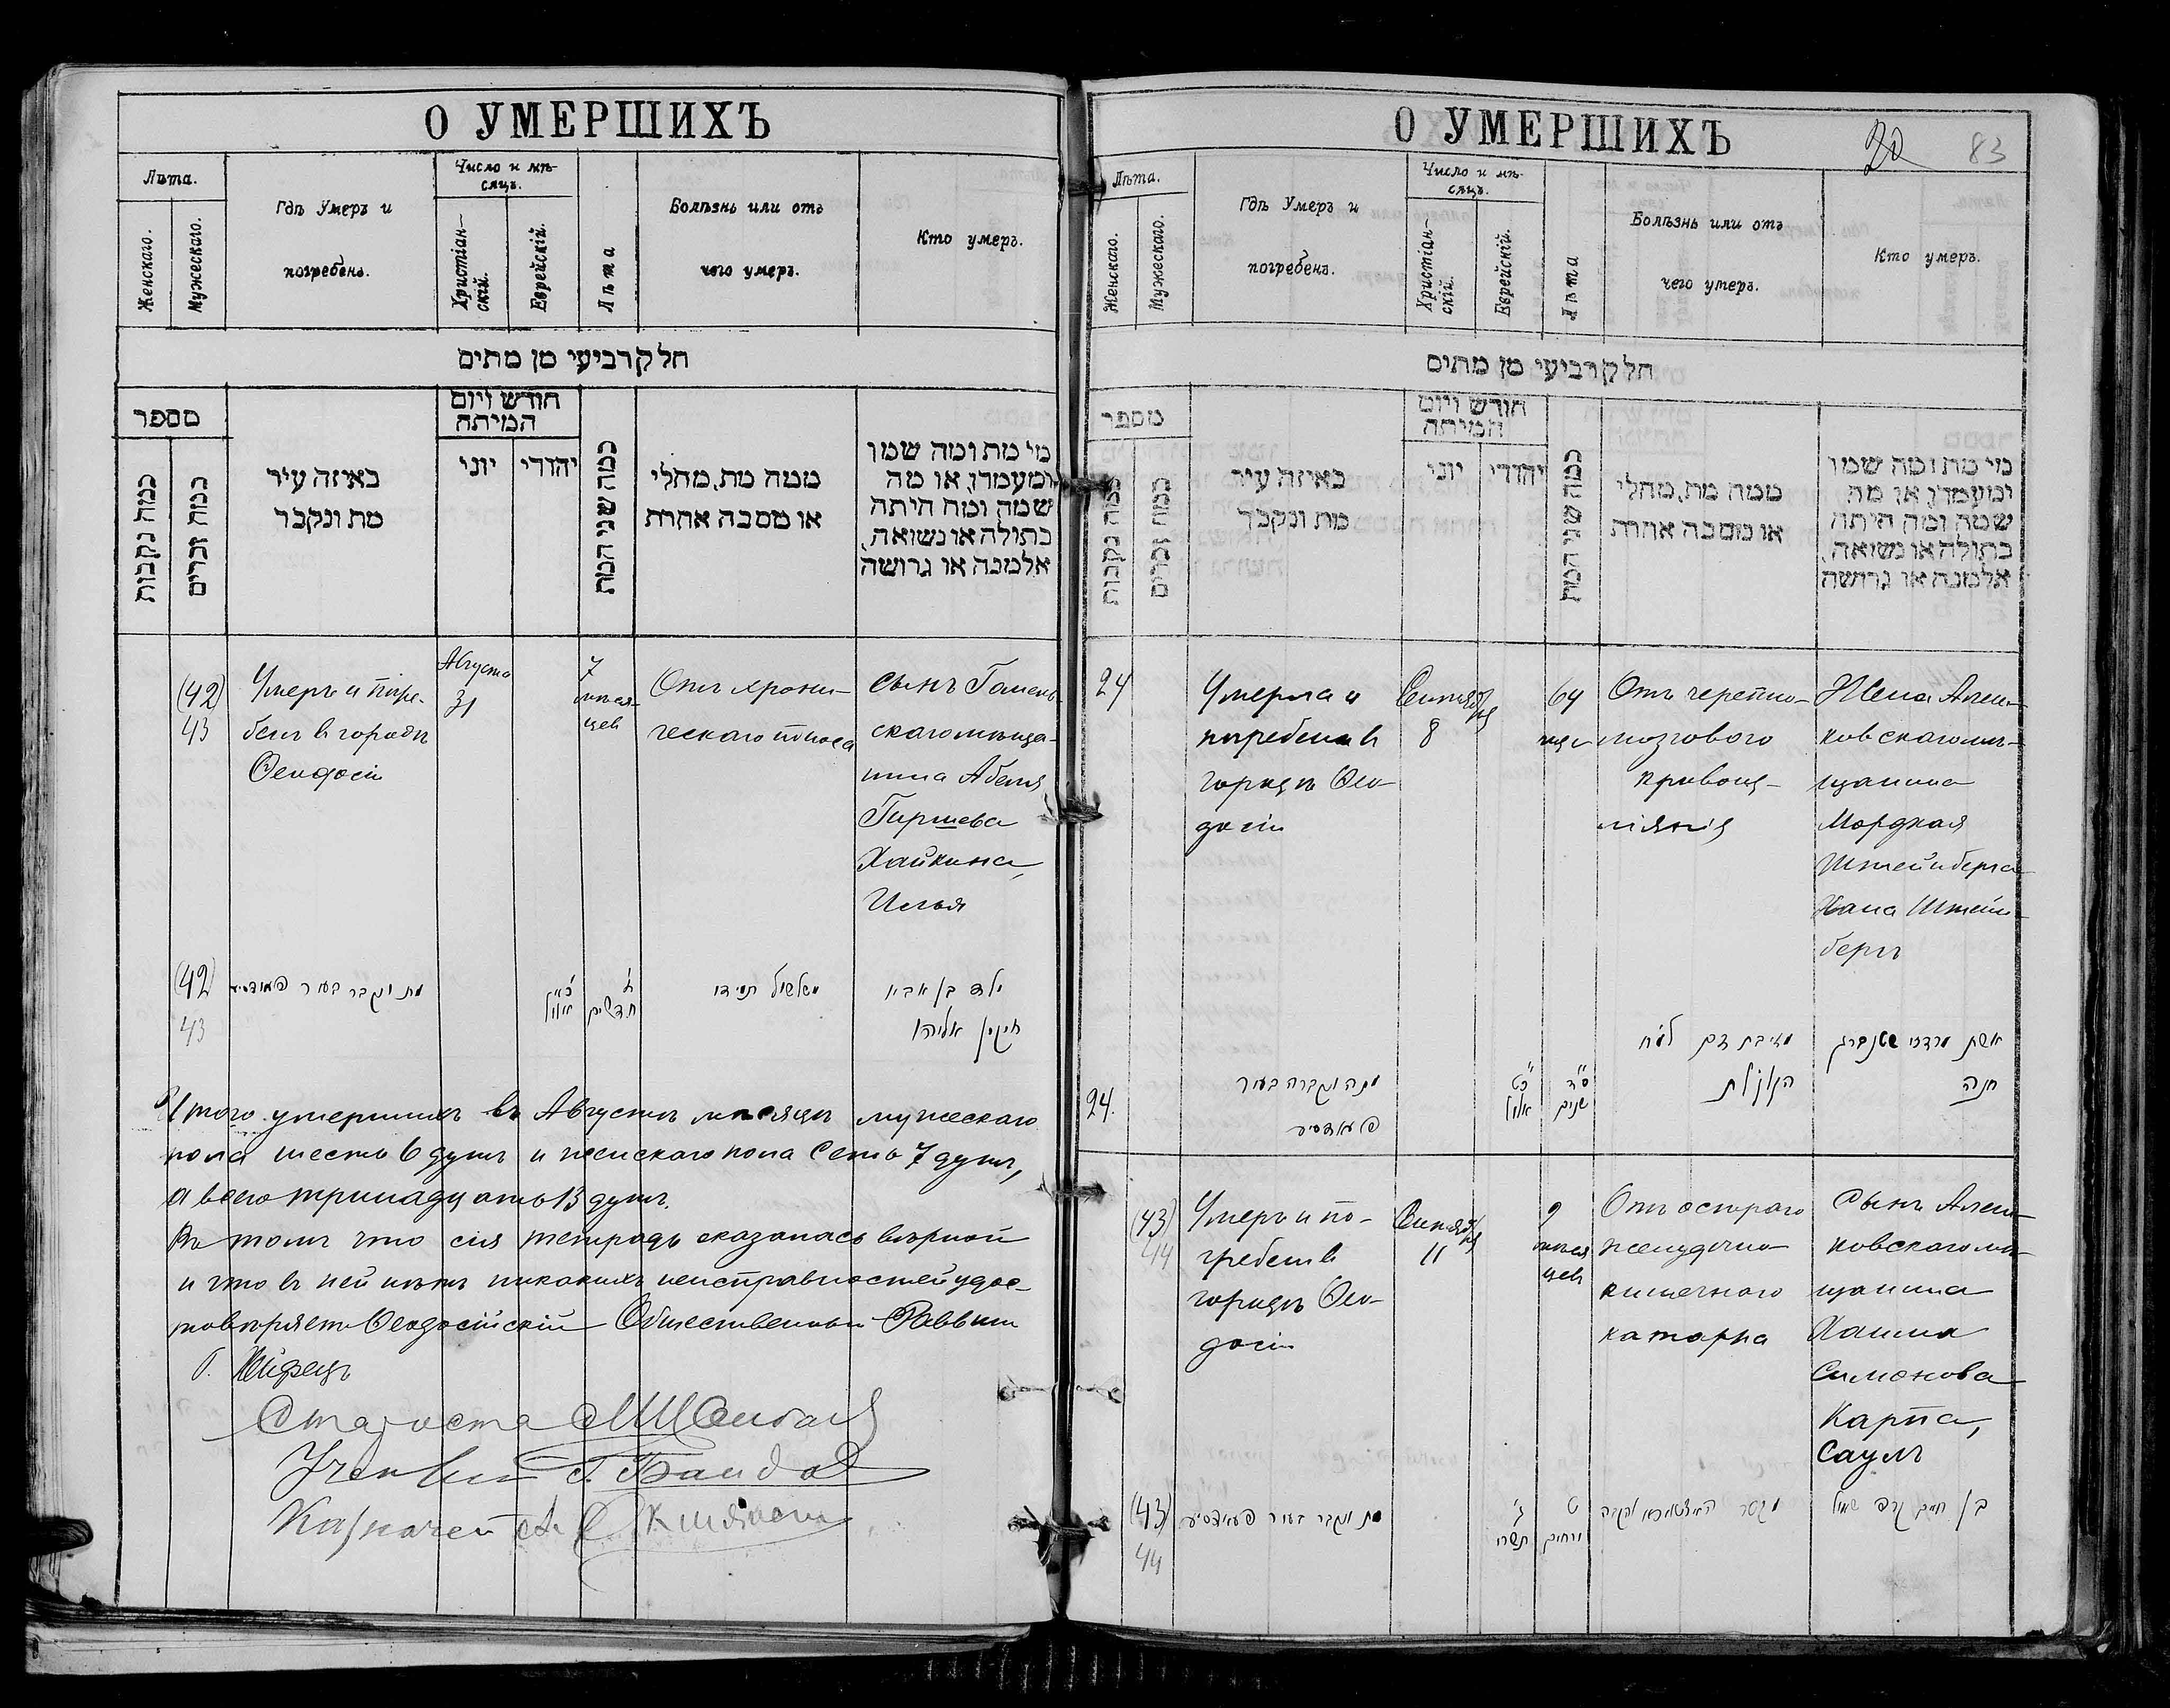 О УМЕРШИХЪ
Лѣта.
Женскаго.
Мужескаго.
Гдѣ Умеръ и
погребенъ.
Число и мѣ-
сяцъ.
Христіан-
скій.
Еврейскій.
Лѣта
Болѣзнь или отъ
чего умеръ.
Кто умеръ.
חלק רביעי מן מתים
מספר
כמה נקבות
כמה זכרים
באיזה עיר
מת ונקבר
חודש ויום
המיתה
יוני
יהודי
כמה שני המת
ממה מת, מחלי
או מסבה אחרת
מי מת ומה שמו
ומעמדו, או מה
שמה ומה היתה
בתולה או נשואה,
אלמנה או גרושה
(42)
43
Умеръ и погре-
бенъ въ городѣ
Ѳеодосіи
Августа
31
7
мѣся-
цев
Отъ хрони-
ческаго поноса
сынъ Гомель-
скаго мѣща-
нина Абеля
Гиршева
Хайкина,
Илья
(42)
43
מת ונקבר בעיר
אלול
חדשים
ילד בן
חייקין אליהו
Итого умершихъ въ Августѣ мѣсяцѣ мужескаго
пола шесть 6 душъ и женскаго пола семь 7 душъ,
а всего тринадцать 13 душъ.
Въ томъ что сія тетрадь оказалась вѣрной
и что въ ней нѣтъ никакихъ неисправностей удос-
товѣряетъ Ѳеодосійскій Общественный Раввинъ
Староста
Казначей
О УМЕРШИХЪ
20
83
Лѣта.
Женскаго.
Мужескаго.
Гдѣ Умеръ и
погребенъ.
Число и мѣ-
сяцъ.
Христіан-
скій.
Еврейскій.
Лѣта
Болѣзнь или отъ
чего умеръ.
Кто умеръ.
חלק רביעי מן מתים
מספר
כמה נקבות
כמה זכרים
באיזה עיר
מת ונקבר
חודש ויום
המיתה
יוני
יהודי
כמה שני המת
ממה מת, מחלי
או מסבה אחרת
מי מת ומה שמו
ומעמדו, או מה
שמה ומה היתה
בתולה או נשואה,
אלמנה או גרושה
24
Умерла и
погребена въ
городѣ Ѳео-
досіи
Сентября
8
64
Отъ черепно-
мозгового
кровоиз-
ліянія
Жена Алеш-
ковскаго мѣ-
щанина
Мордхая
Штейнберга
Хана Штейн-
бергъ
24.
מתה ונקברה בעיר
כט
אלול
ס"ד
שנים
אשת מרדכי
חנה
(43)
44
Умеръ и по-
гребенъ въ
городѣ Ѳео-
досіи
Сентября
11
9
мѣся
цевъ
Отъ остраго
желудочно
кишечного
катарра
Сынъ Алеш-
ковскаго мѣ-
щанина
Хаима
Симонова
Карпа,
Саулъ
(43)
44
מת ונקבר בעיר
תשרי
ט
ירחים
בן חיים קרפ שאול